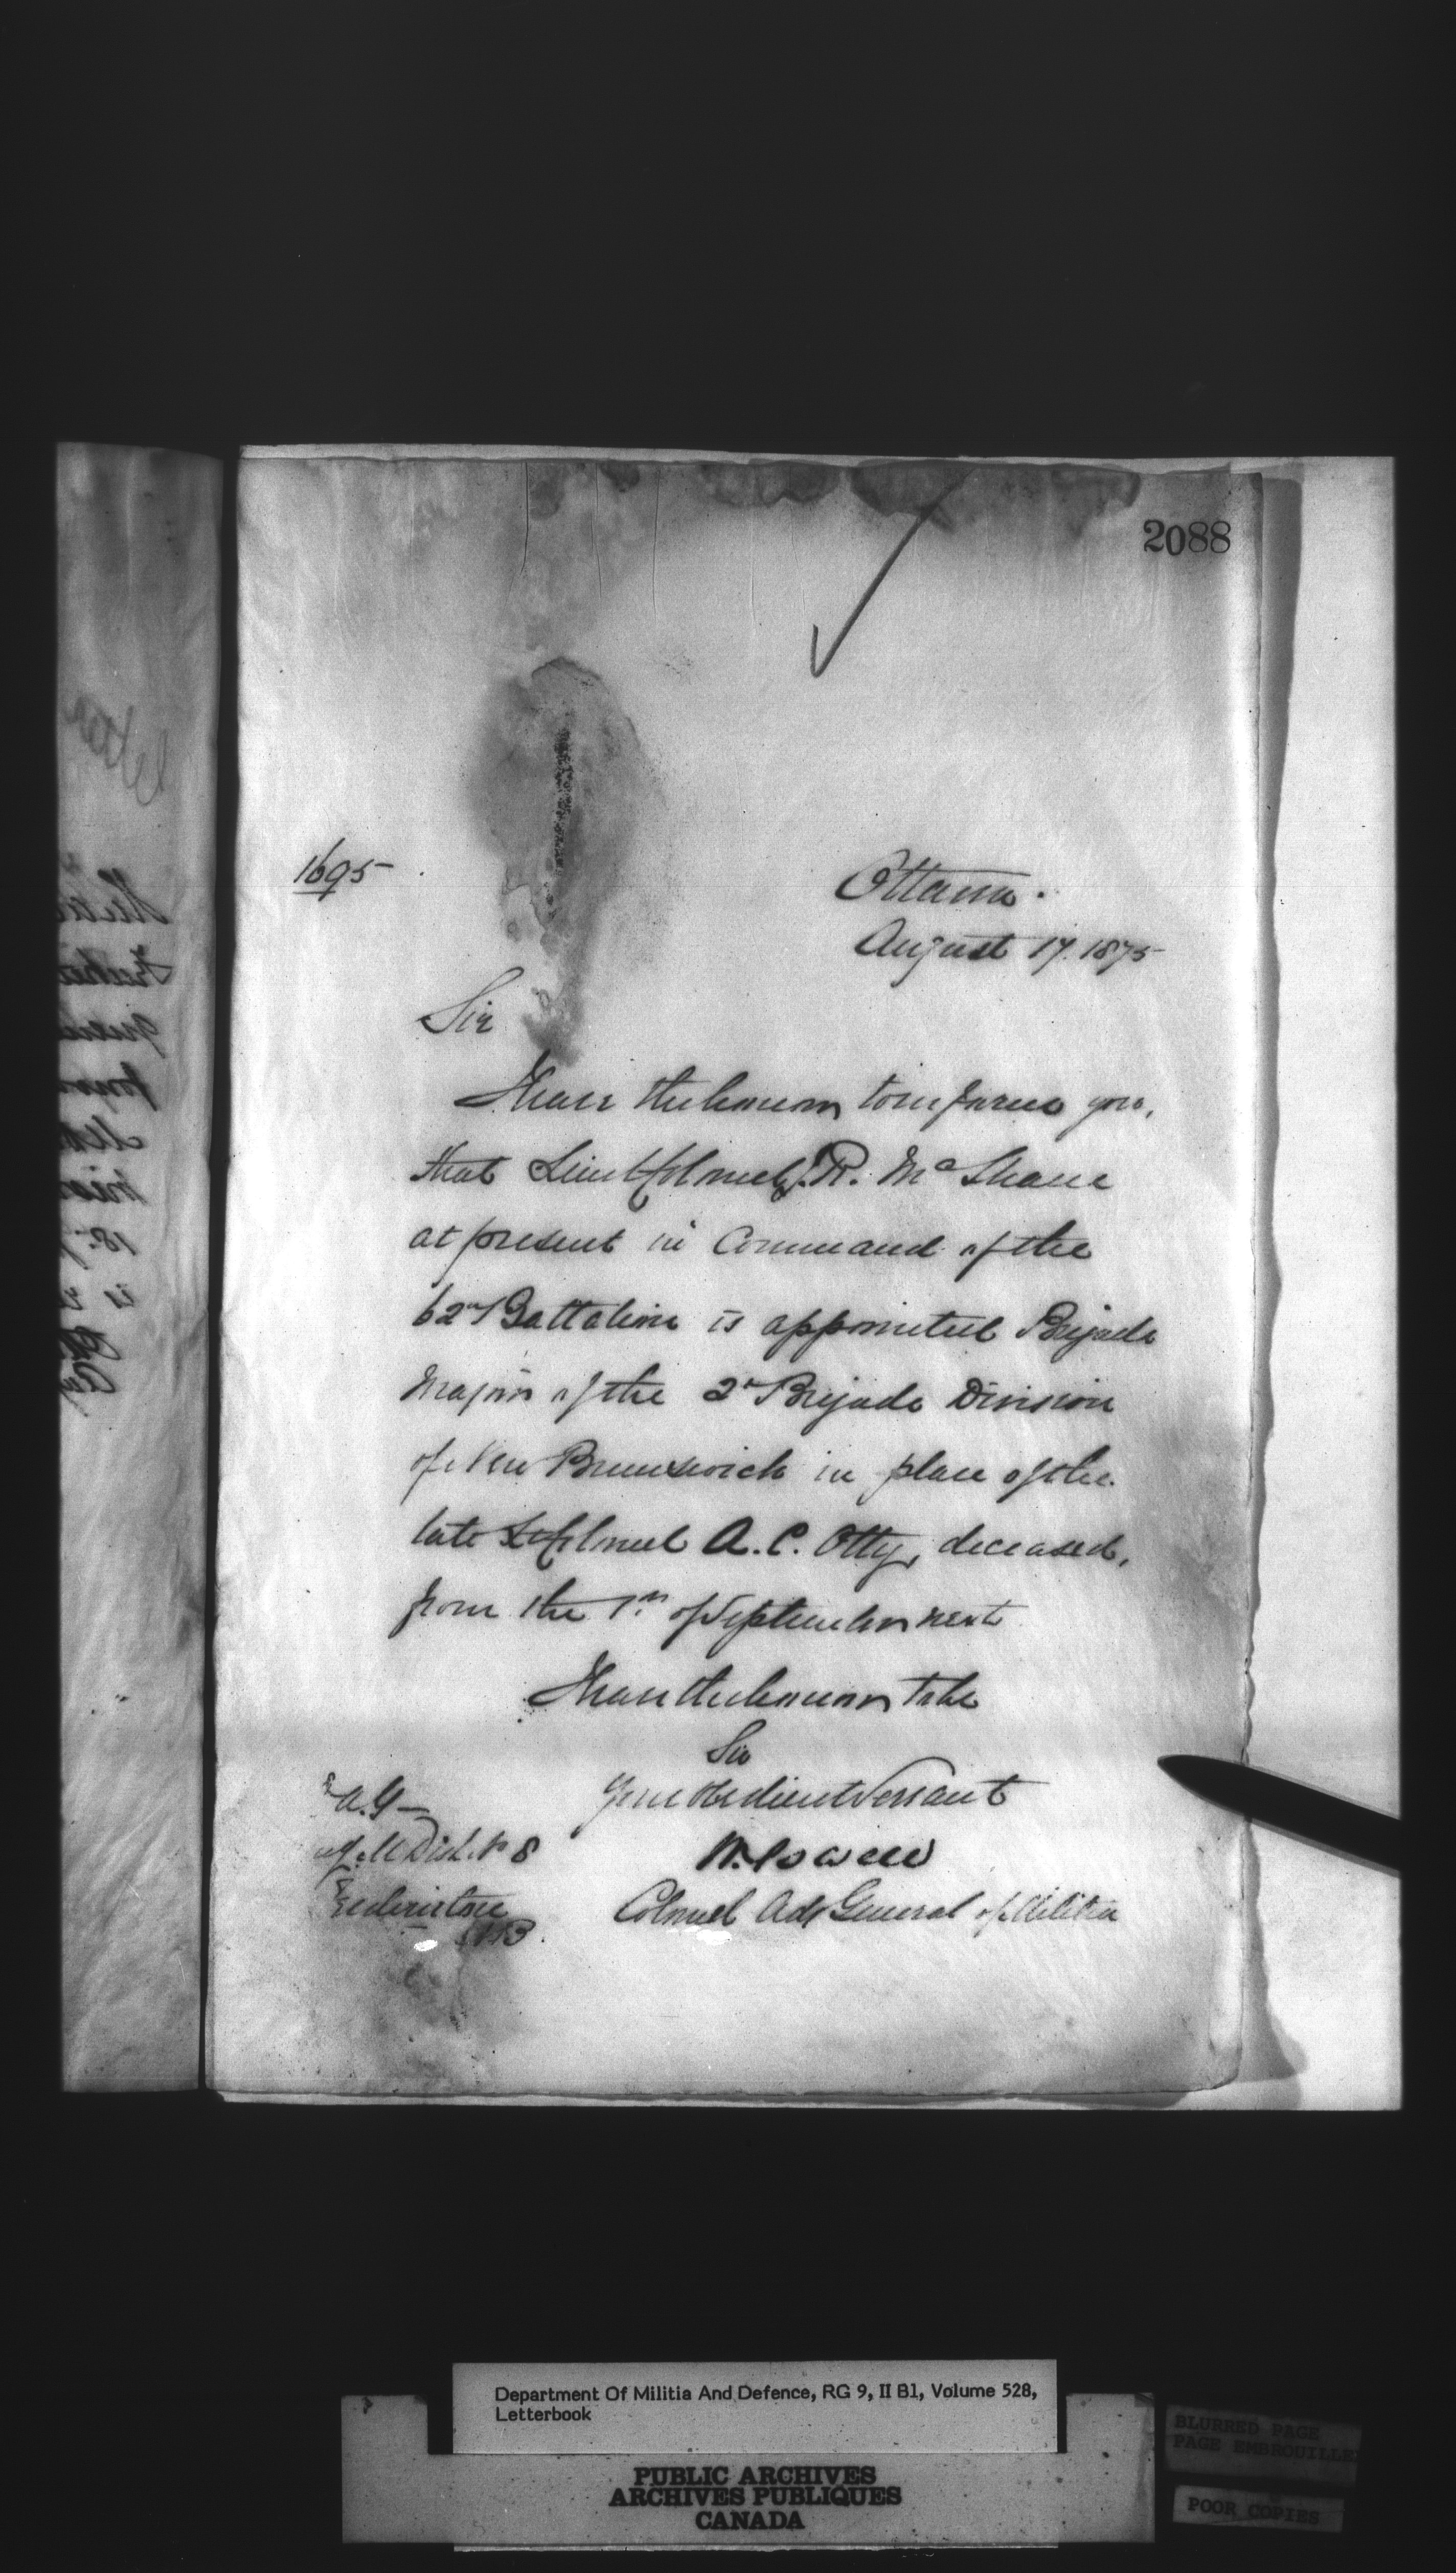 2088
1695
Ottawa.
August 17. 1875
Sir
I have the honour to inform you,
that Lieut Colonel J. R. McShane
at present in Command of the
62nd Battalion is appointed Brigade
Major of the 2d Brigade Division
of New Brunswick in place of the
late Lt Colonel A. C. Otty, deceased,
from the 1st of September next
I have the honour to be
Sir
Your obedient Servant
W. Powell
Colonel Adj General of Militia
A.G.
M Dist. No 8
Fredericton
N.B.
Department Of Militia And Defence, RG 9, II B1, Volume 528,
Letterbook
PUBLIC ARCHIVES
ARCHIVES PUBLIQUES
CANADA
BLURRED PAGE
PAGE EMBROUILLE
POOR COPIES